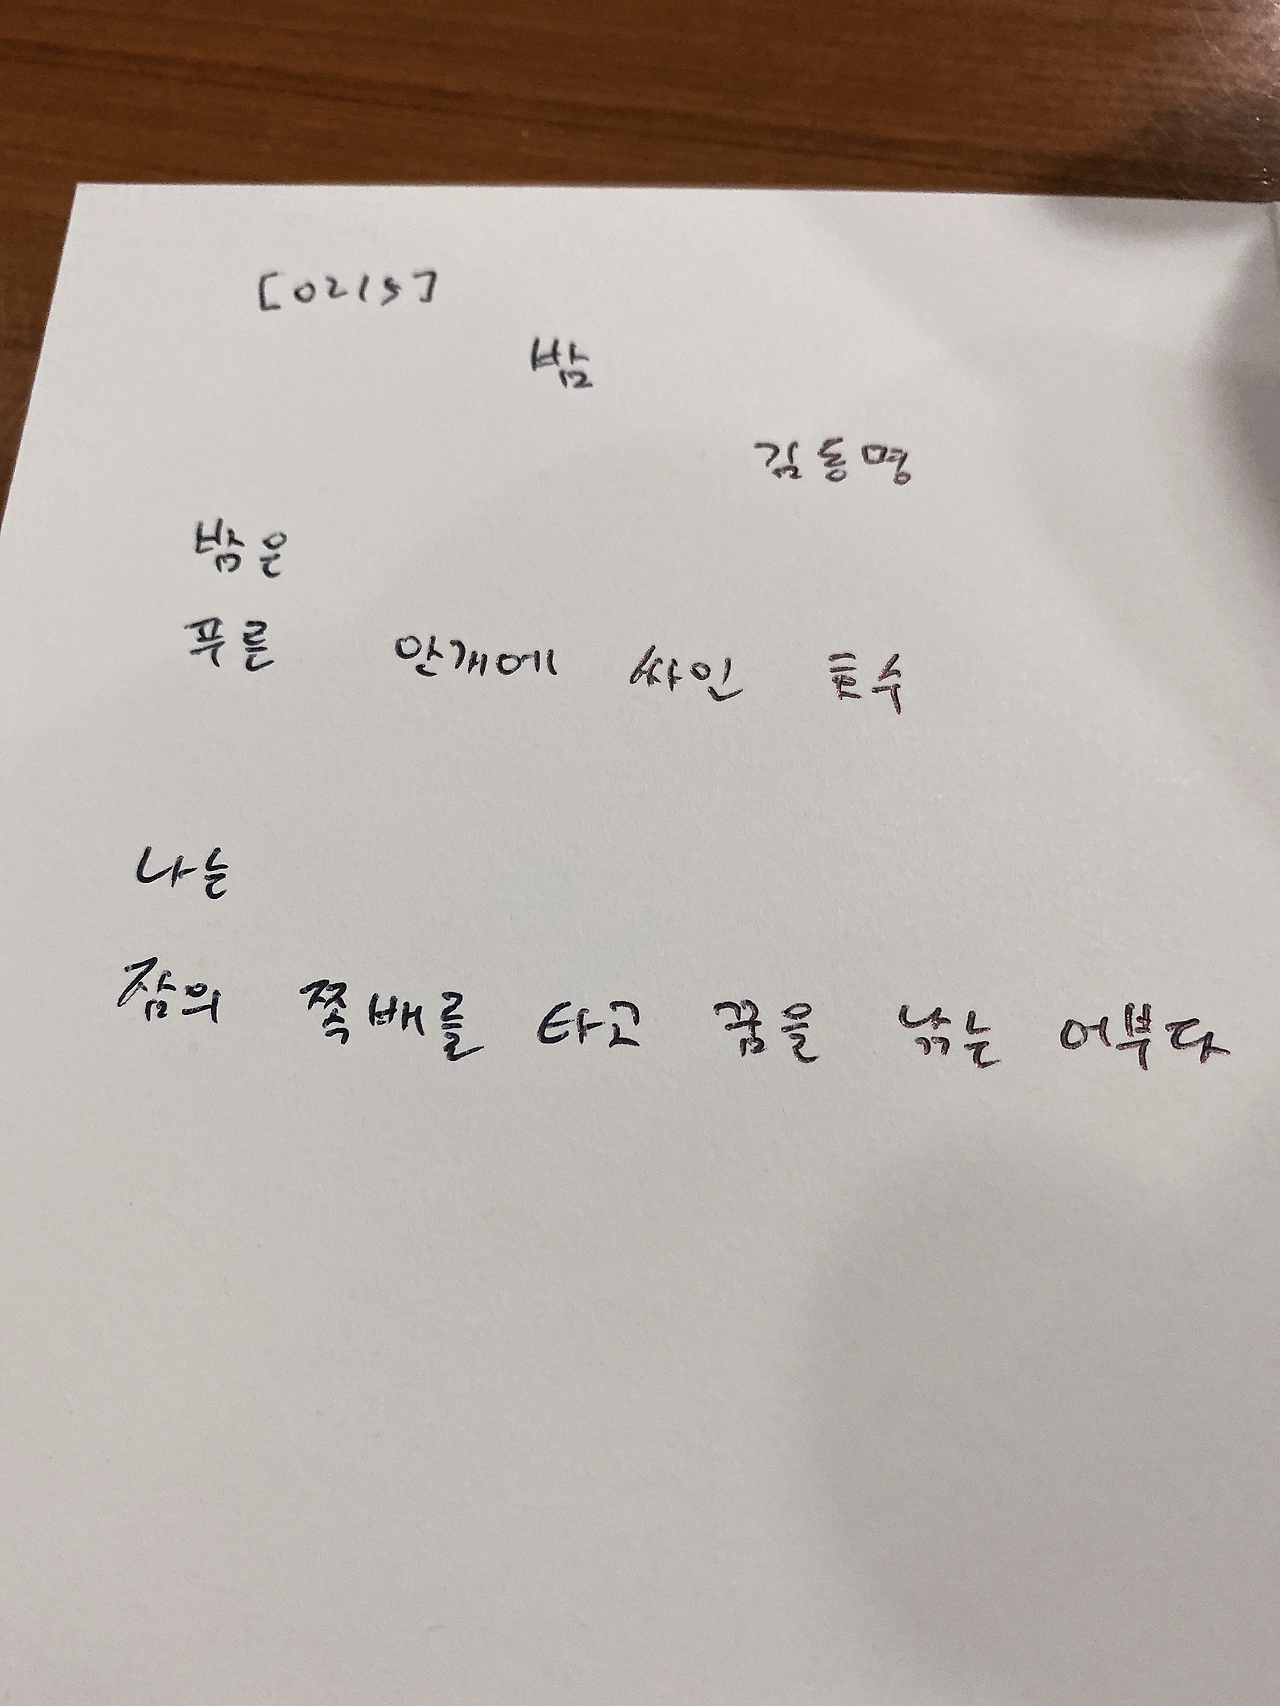 [0215]
밤
김동명
밤은
푸른 안개에 싸인 호수
나는
잠의 쪽배를 타고 꿈을 낚는 어부다